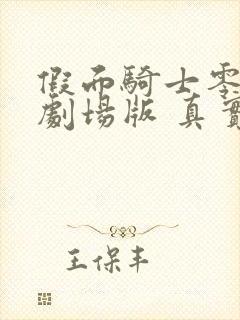 假面騎士零
劇場版 真實
王保丰